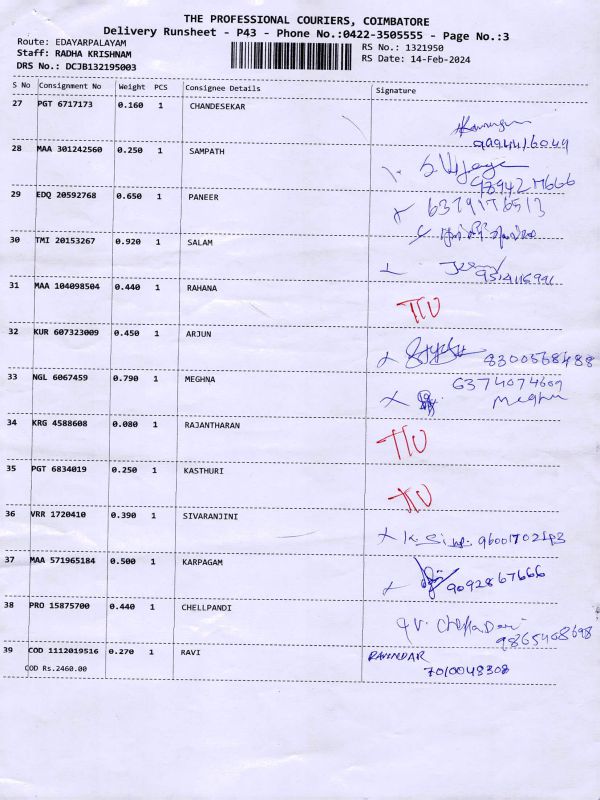 THE PROFESSIONAL COURIERS, COIMBATORE
Delivery Runsheet - P43 - Phone No.:0422-3505555 - Page No.:3
Route: EDAYARPALAYAM
Staff: RADHA KRISHNAM
DRS No.: DCJB132195003
RS No.: 1321950
RS Date: 14-Feb-2024
S No Consignment No Weight PCS Consignee Details Signature
27 PGT 6717173 0.160 1 CHANDESEKAR
9994416049
28 MAA 301242560 0.250 1 SAMPATH
989427666
29 EDQ 20592768 0.650 1 PANEER 6379176513
30 TMI 20153267 0.920 1 SALAM
31 MAA 104098504 0.440 1 RAHANA
32 KUR 607323009 0.450 1 ARJUN
8300568488
33 NGL 6067459 0.790 1 MEGHNA 6374074609
Meghn
34 KRG 4588608 0.080 1 RAJANTHARAN
35 PGT 6834019 0.250 1 KASTHURI
36 VRR 1720410 0.390 1 SIVARANJINI
37 MAA 571965184 0.500 1 KARPAGAM
9092867666
38 PRO 15875700 0.440 1 CHELLPANDI
9865468698
39 COD 1112019516 0.270 1 RAVI RAVINDAR
COD Rs.2460.00 7010048308